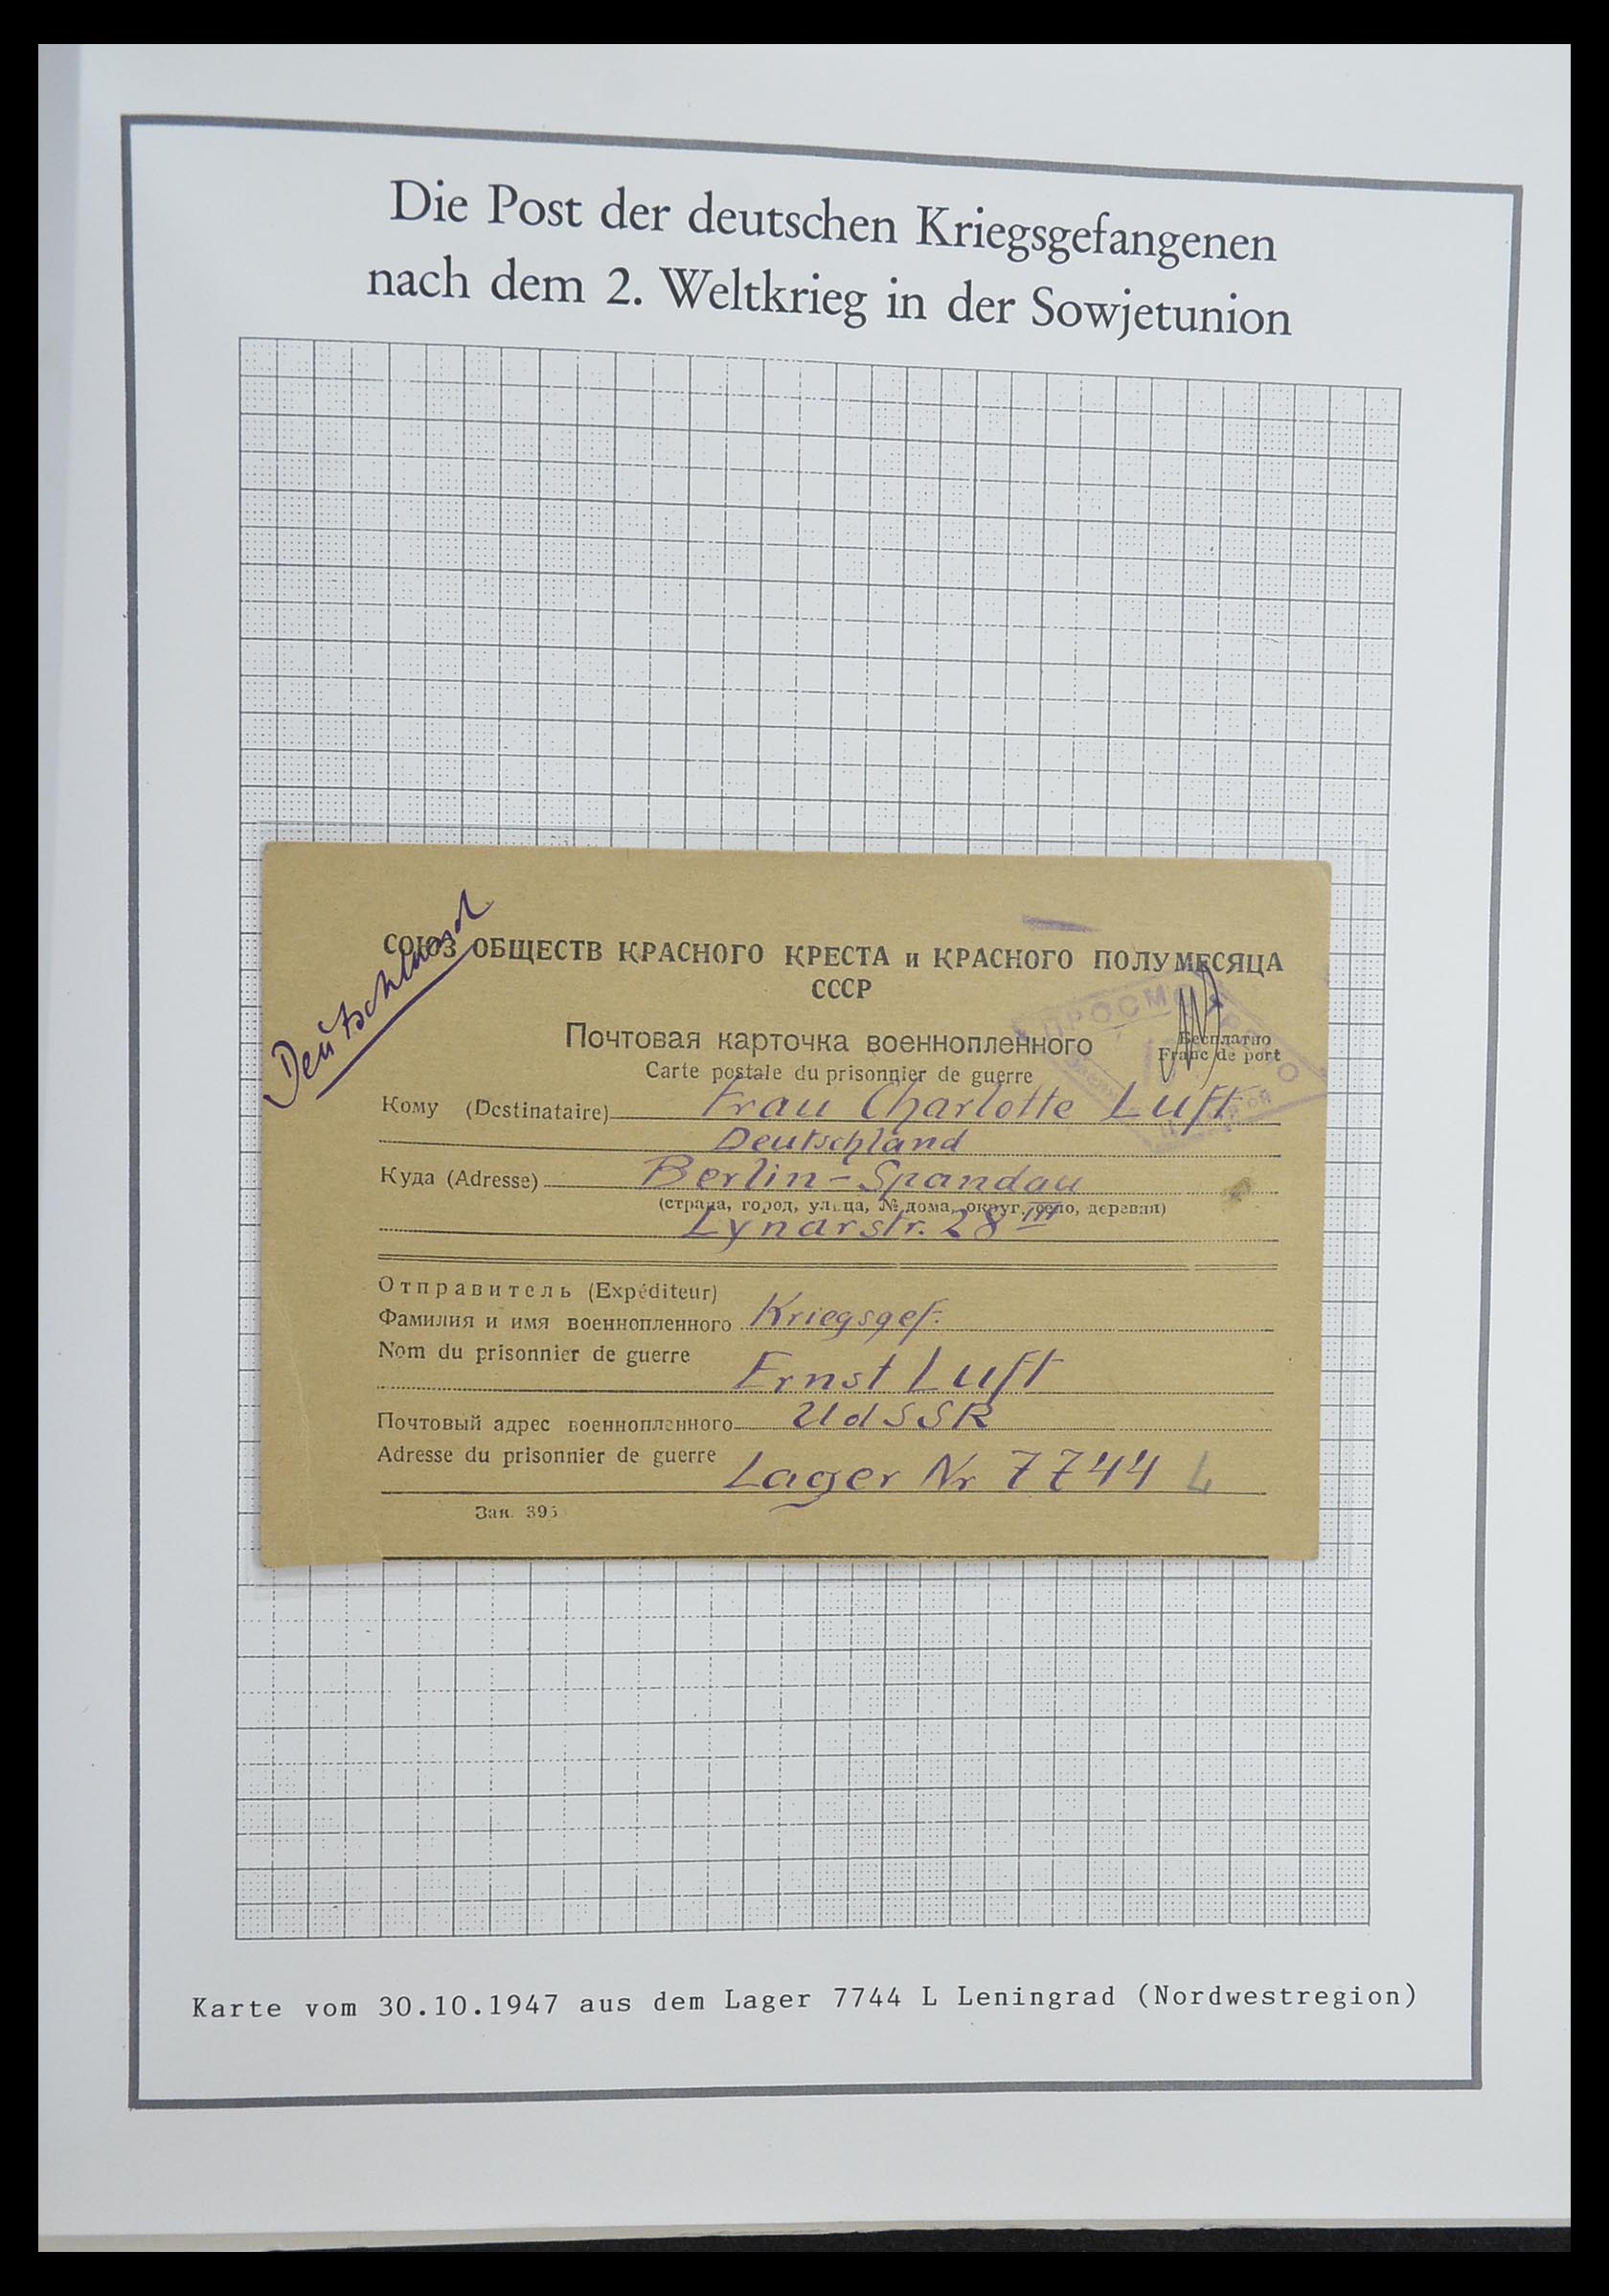 Die Post der deutschen Kriegsgefangenen
nach dem 2. Weltkrieg in der Sowjetunion
Deutschland
СОЮЗ ОБЩЕСТВ КРАСНОГО КРЕСТА и КРАСНОГО ПОЛУМЕСЯЦА
СССР
ПРОСМОТРЕНО
Почтовая карточка военнопленного
Бесплатно
Carte postale du prisonnier de guerre
Franc de port
Кому (Destinataire) Frau Charlotte Luft
Deutschland
Куда (Adresse) Berlin-Spandau
(страна, город, улица, № дома, округ, село, деревня)
Lynarstr. 28 III
Отправитель (Expéditeur)
Фамилия и имя военнопленного Kriegsgef.
Nom du prisonnier de guerre
Ernst Luft
Почтовый адрес военнопленного UdSSR
Adresse du prisonnier de guerre Lager Nr 7744 L
Зак. 395
Karte vom 30.10.1947 aus dem Lager 7744 L Leningrad (Nordwestregion)